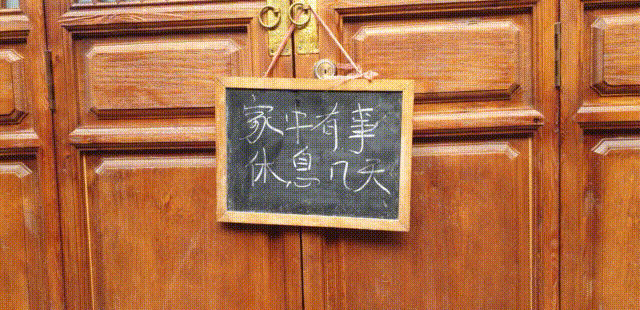 家中有事
休息几天